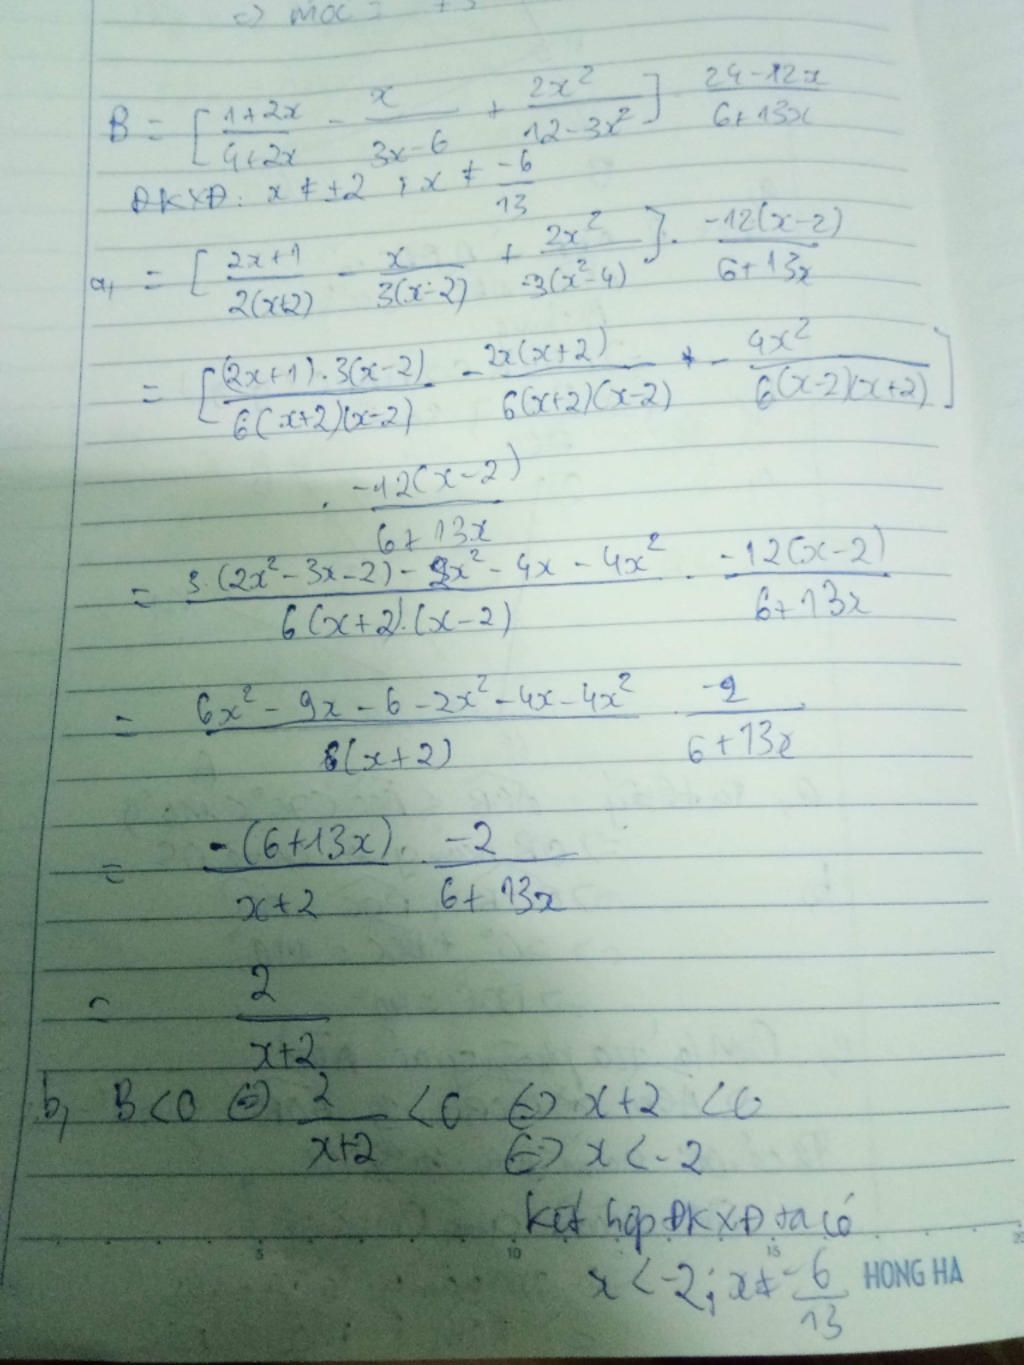 B = [ (1+2x)/(4+2x) - x/(3x-6) + 2x²/(12-3x²) ] . (24-12x)/(6+13x)
ĐKXĐ: x ≠ ±2 ; x ≠ -6/13
a, = [ (2x+1)/(2(x+2)) - x/(3(x-2)) + 2x²/(-3(x²-4)) ] . (-12(x-2))/(6+13x)
= [ ((2x+1).3(x-2))/(6(x+2)(x-2)) - (2x(x+2))/(6(x+2)(x-2)) - 4x²/(6(x-2)(x+2)) ]
. (-12(x-2))/(6+13x)
= (3.(2x²-3x-2)-2x²-4x-4x²)/(6(x+2).(x-2)) . (-12(x-2))/(6+13x)
= (6x²-9x-6-2x²-4x-4x²)/(6(x+2)) . (-2)/(6+13x)
= (-(6+13x))/(x+2) . (-2)/(6+13x)
= 2/(x+2)
b, B<0 ⇔ 2/(x+2) <0 ⇔ x+2 <0
⇔ x<-2
Kết hợp ĐKXĐ ta có
x<-2; x≠ -6/13
5 10 15 20
HONG HA